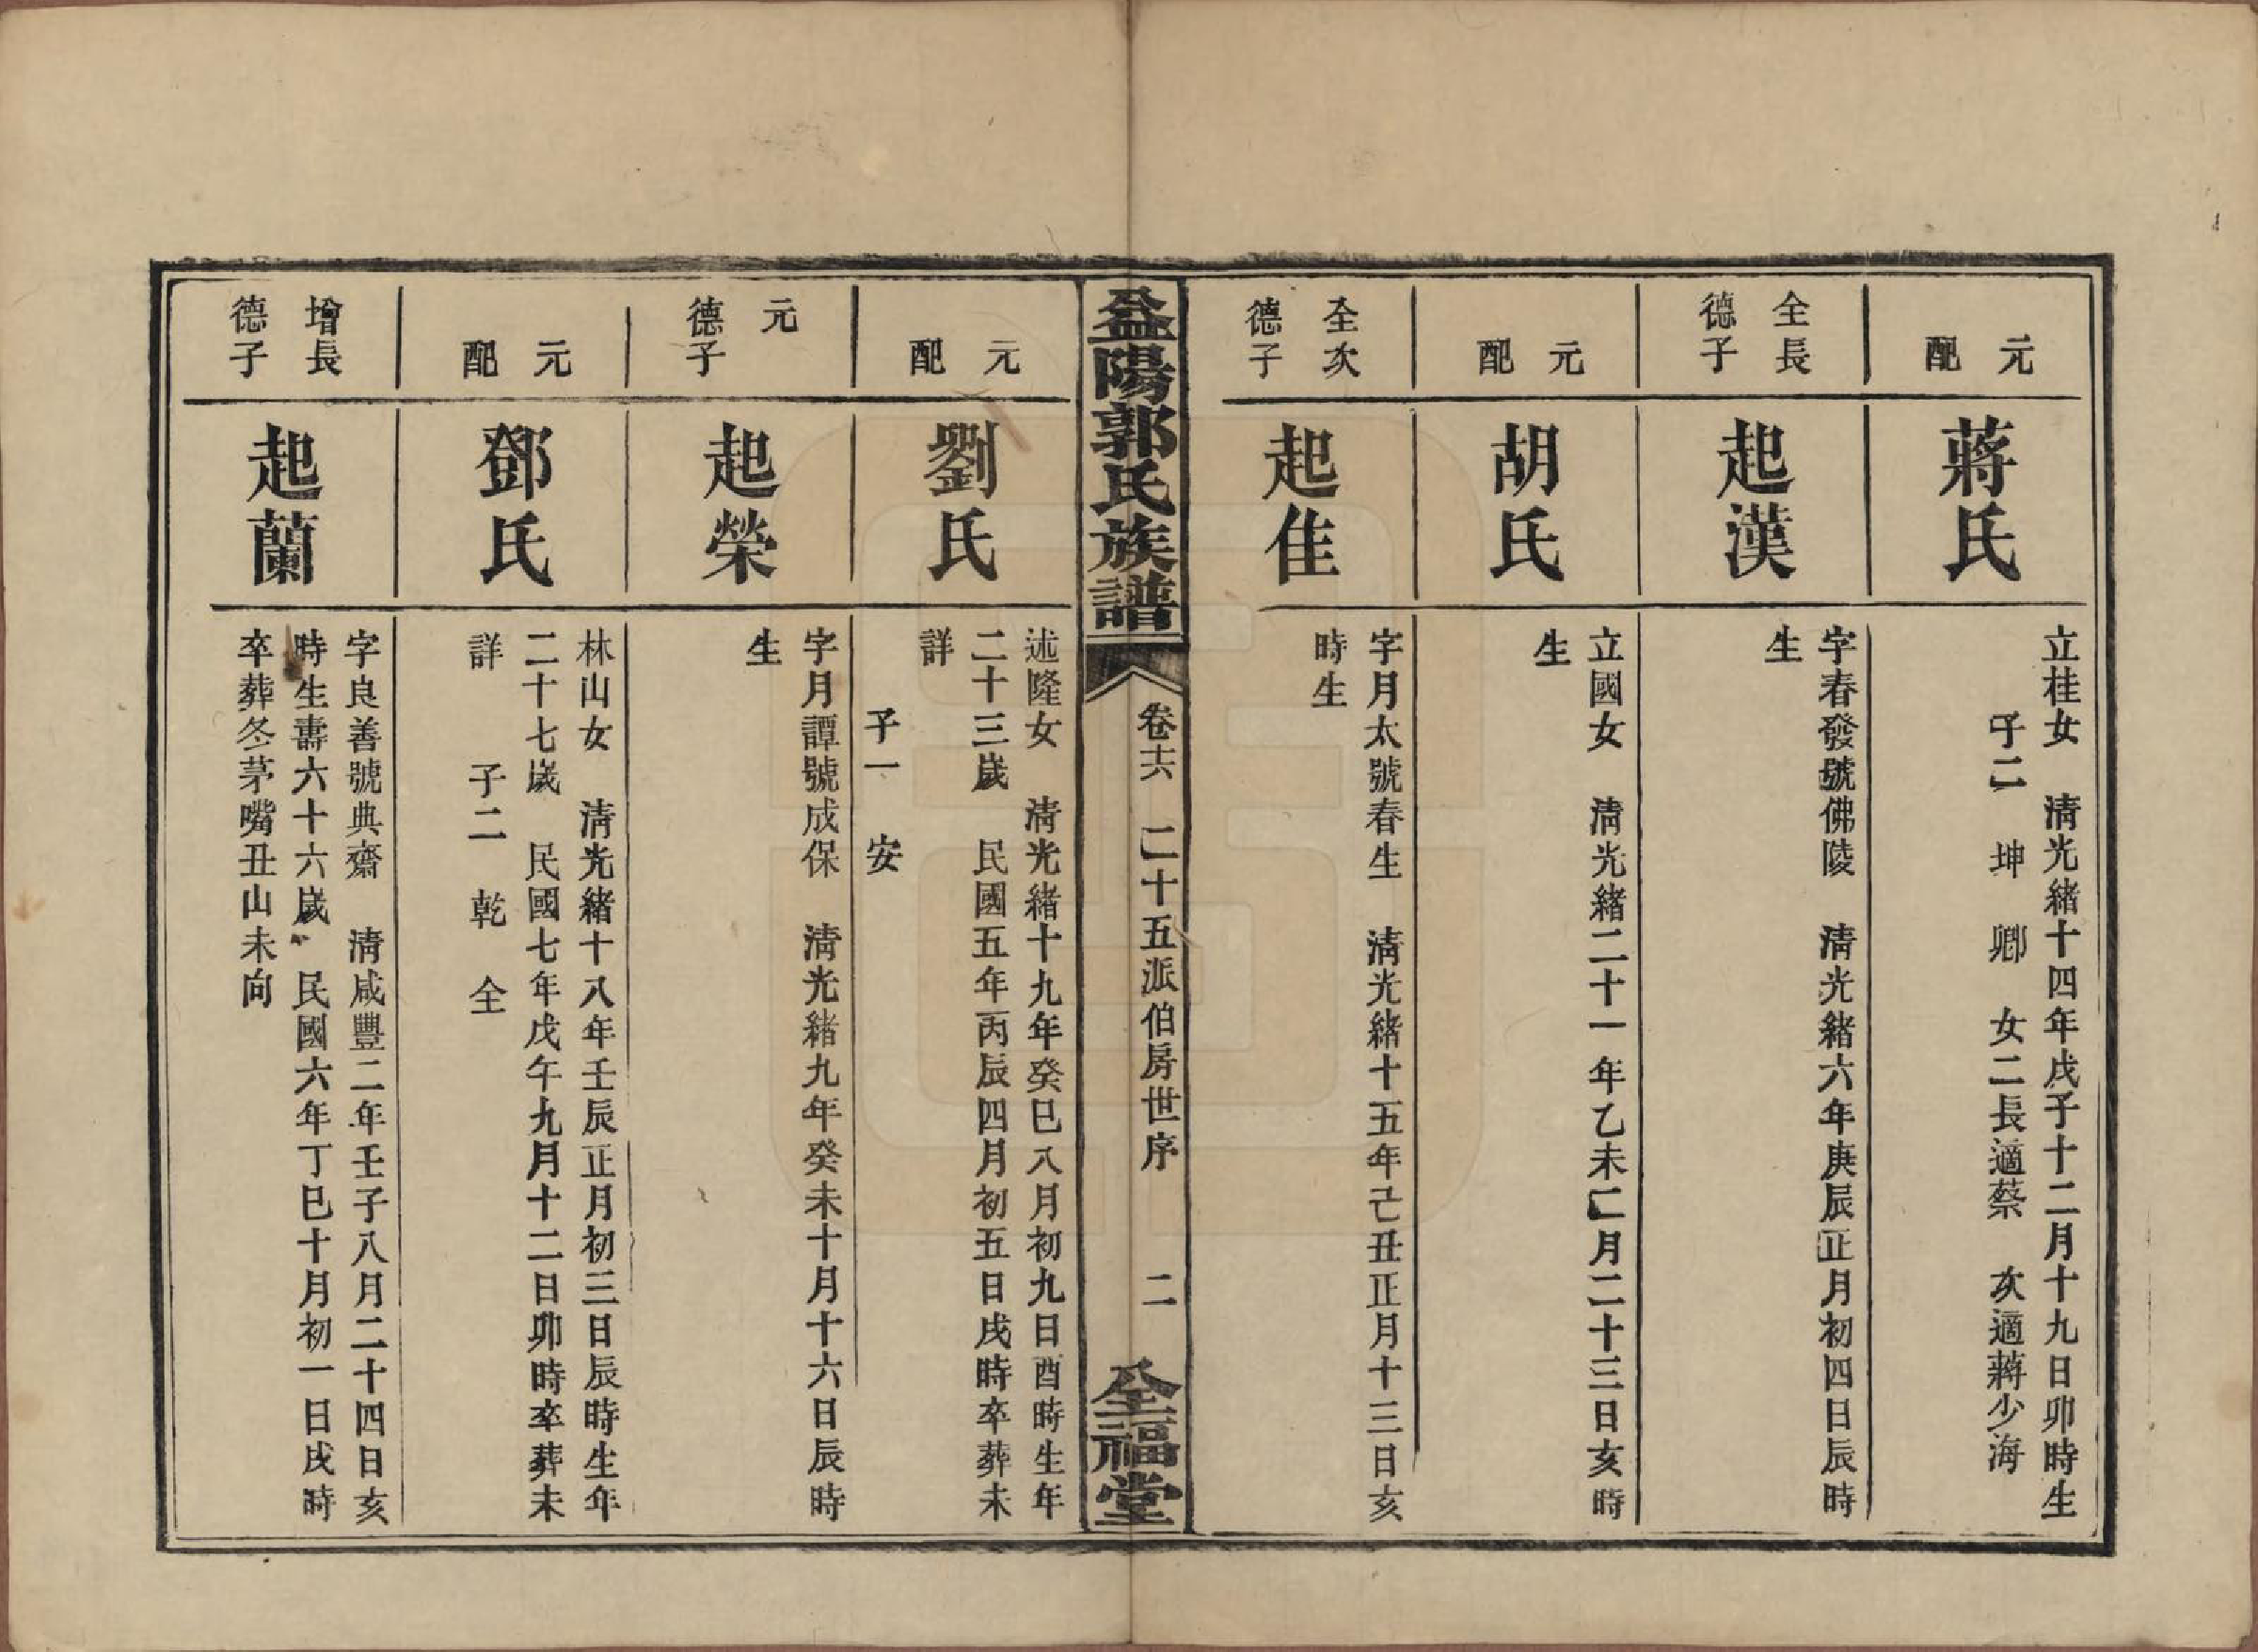 元配
蔣氏
立桂女　淸光緒十四年戊子十二月十九日卯時生
子二　坤　卿　女二長適蔡　次適蔣少海
全長德子
起漢
字春發號佛陵　淸光緒六年庚辰正月初四日辰時
生
元配
胡氏
立國女　淸光緒二十一年乙未二月二十三日亥時
生
全次德子
起佳
字月太號春生　淸光緒十五年己丑正月十三日亥
時生
益陽郭氏族譜
卷十六　二十五派伯房世序　二
全福堂
元配
劉氏
述隆女　淸光緒十九年癸巳八月初九日酉時生年
二十三歲　民國五年丙辰四月初五日戌時卒葬未
詳
子一　安
元德子
起榮
字月譚號成保　淸光緒九年癸未十月十六日辰時
生
元配
鄧氏
林山女　淸光緒十八年壬辰正月初三日辰時生年
二十七歲　民國七年戊午九月十二日卯時卒葬未
詳　子二　乾　全
增長德子
起蘭
字良善號典齋　淸咸豐二年壬子八月二十四日亥
時生壽六十六歲　民國六年丁巳十月初一日戌時
卒葬冬茅嘴丑山未向